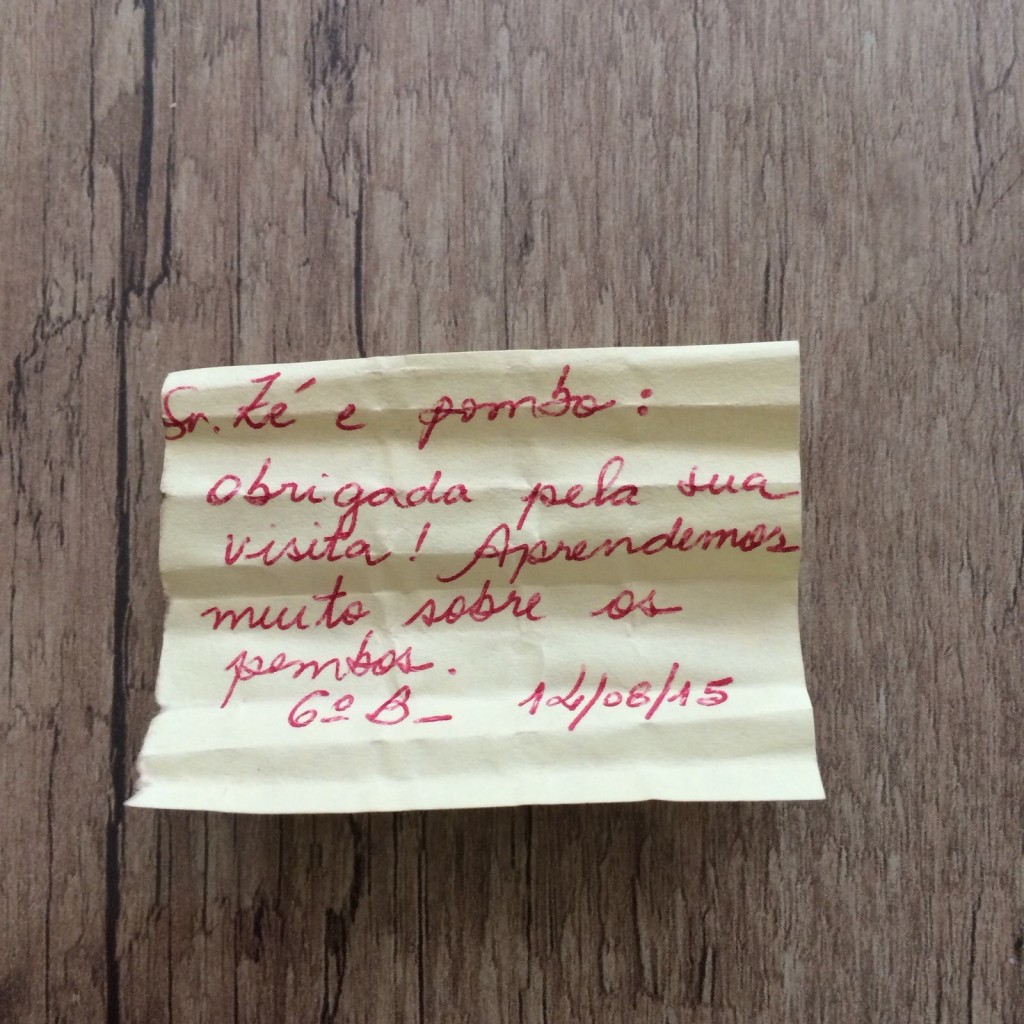 Sr. Zé e pombo:
obrigada pela sua
visita! Aprendemos
muito sobre os
pombos.
6º B_ 14/08/15